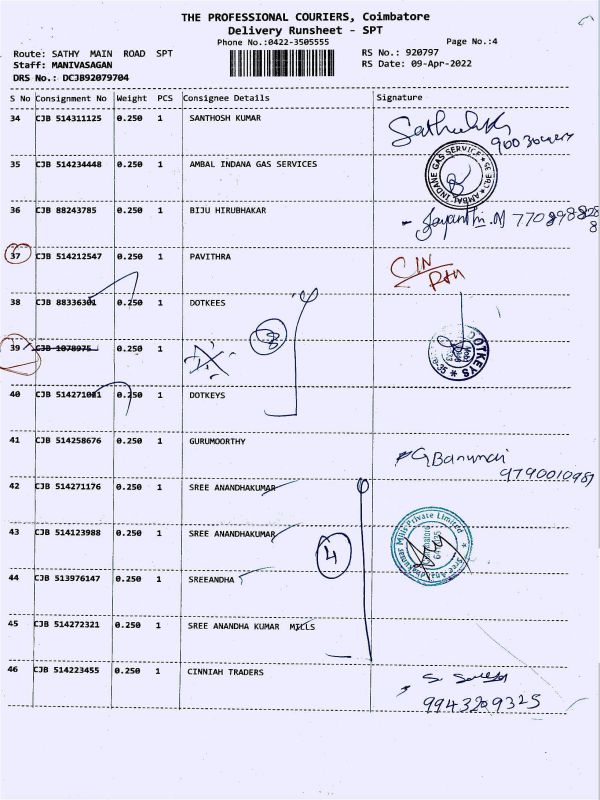 THE PROFESSIONAL COURIERS, Coimbatore
Delivery Runsheet - SPT
Phone No.:0422-3505555
Page No.:4
Route: SATHY MAIN ROAD SPT
RS No.: 920797
Staff: MANIVASAGAN
RS Date: 09-Apr-2022
DRS No.: DCJB92079704
S No Consignment No Weight PCS Consignee Details Signature
34 CJB 514311125 0.250 1 SANTHOSH KUMAR
35 CJB 514234448 0.250 1 AMBAL INDANA GAS SERVICES
AMBAL INDANE GAS SERVICE * CBE-35 *
36 CJB 88243785 0.250 1 BIJU HIRUBHAKAR
Jayanthi.M
37 CJB 514212547 0.250 1 PAVITHRA
38 CJB 88336301 0.250 1 DOTKEES
39 CJB 1078975 0.250 1
3
DOTKEYS
40 CJB 514271001 0.250 1 DOTKEYS
41 CJB 514258676 0.250 1 GURUMOORTHY
G Banumai
9790010987
42 CJB 514271176 0.250 1 SREE ANANDHAKUMAR
43 CJB 514123988 0.250 1 SREE ANANDHAKUMAR
4
Sree Anandhakumar Mills Private Limited
44 CJB 513976147 0.250 1 SREEANDHA
45 CJB 514272321 0.250 1 SREE ANANDHA KUMAR MILLS
46 CJB 514223455 0.250 1 CINNIAH TRADERS
9943209325